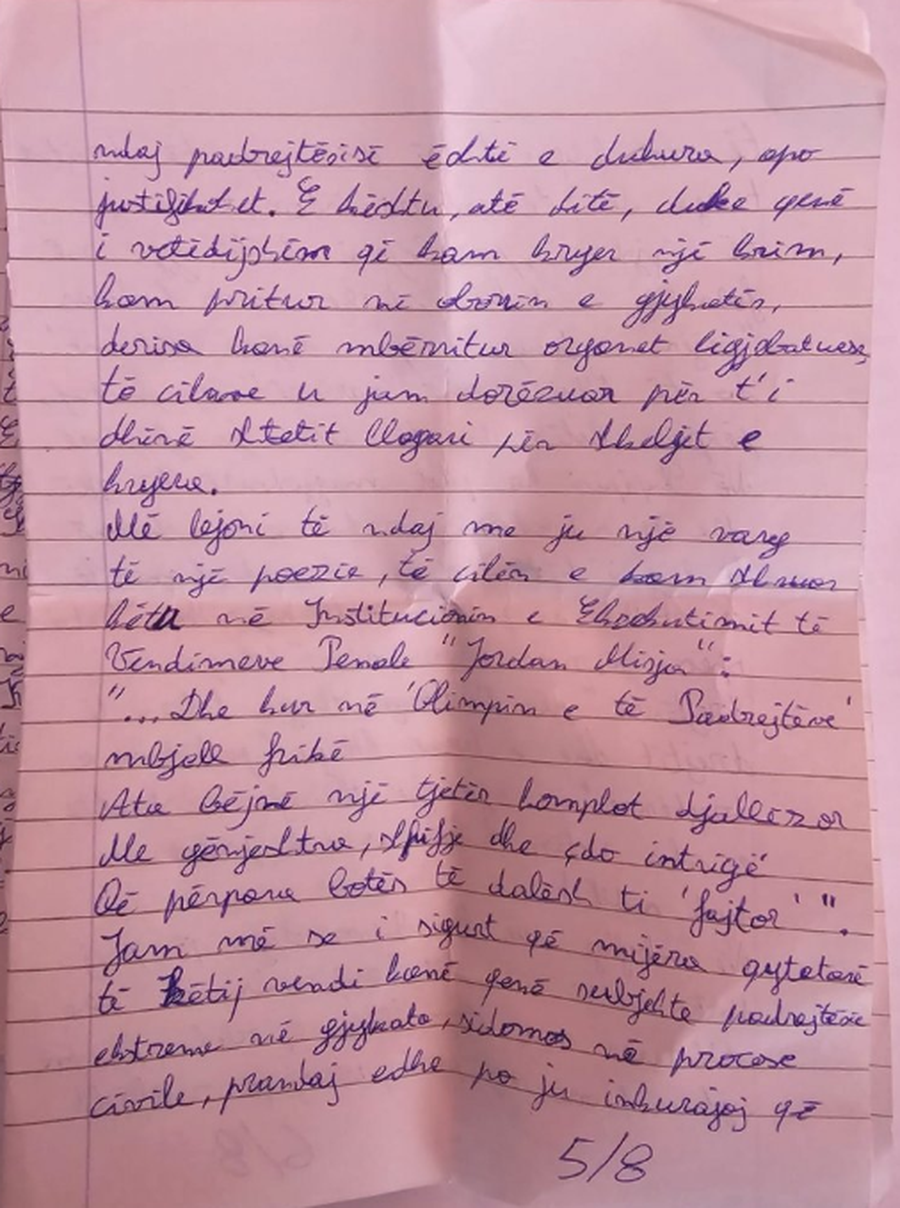 ndaj padrejtësisë është e duhura, apo
justifikohet. E kështu, atë ditë, duke qenë
i vetëdijshëm që kam kryer një krim,
kam pritur në oborrin e gjykatës,
derisa kanë mbërritur organet ligjzbatuese,
të cilave u jam dorëzuar për t'i
dhënë shtetit llogari për shkeljet e
kryera.
Më lejoni të ndaj me ju një varg
të një poezie, të cilën e kam shkruar
këtu në Institucionin e Ekzekutimit të
Vendimeve Penale "Jordan Misja":
"... Dhe kur në 'Olimpin e të Padrejtëve'
mbjell frikë
Ata bëjnë një tjetër komplot djallëzor
Me gënjeshtra, shpifje dhe çdo intrigë
Që përpara botës të dalësh ti 'fajtor' ".
Jam më se i sigurt që mijëra qytetarë
të këtij vendi kanë qenë subjekte padrejtësie
ekstreme në gjykata, sidomos në procese
civile, prandaj edhe po ju inkurajoj që
5/8